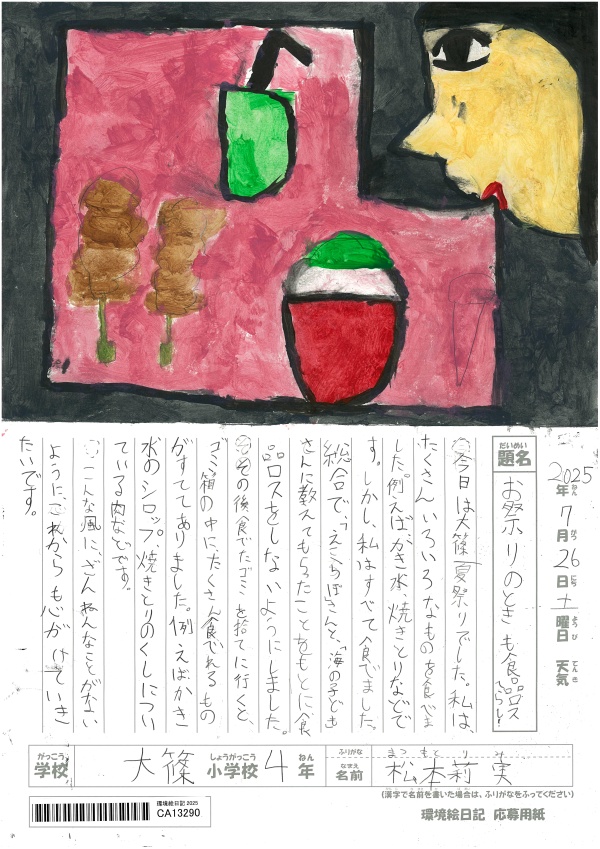 2025年7月26日土曜日 天気
ねん がつ にち ようび てんき
だいめい
題名
お祭りのときも食品ロスへらし!
今日は大篠夏祭りでした。私は、
たくさんいろいろなものを食べま
した。例えば、かき氷、焼きとりなどで
す。しかし、私はすべて食べました。
総合で、「えこらぼ」さんと、「海の子ども」
さんに教えてもらったことをもとに、食
品ロスをしないようにしました。
その後食べたゴミを捨てに行くと、
ゴミ箱の中にたくさん食べれるもの
がすててありました。例えばかき
氷のシロップ、焼きとりのくしについ
ている肉などです。
こんな風に、ざんねんなことがない
ように、これからも心がけていき
たいです。
がっこう しょうがっこう ねん
学校 大篠 小学校 4年
ふりがな まつもと りみ
なまえ
名前 松本莉実
(漢字で名前を書いた場合は、ふりがなをふってください)
環境絵日記 2025
CA13290
環境絵日記 応募用紙